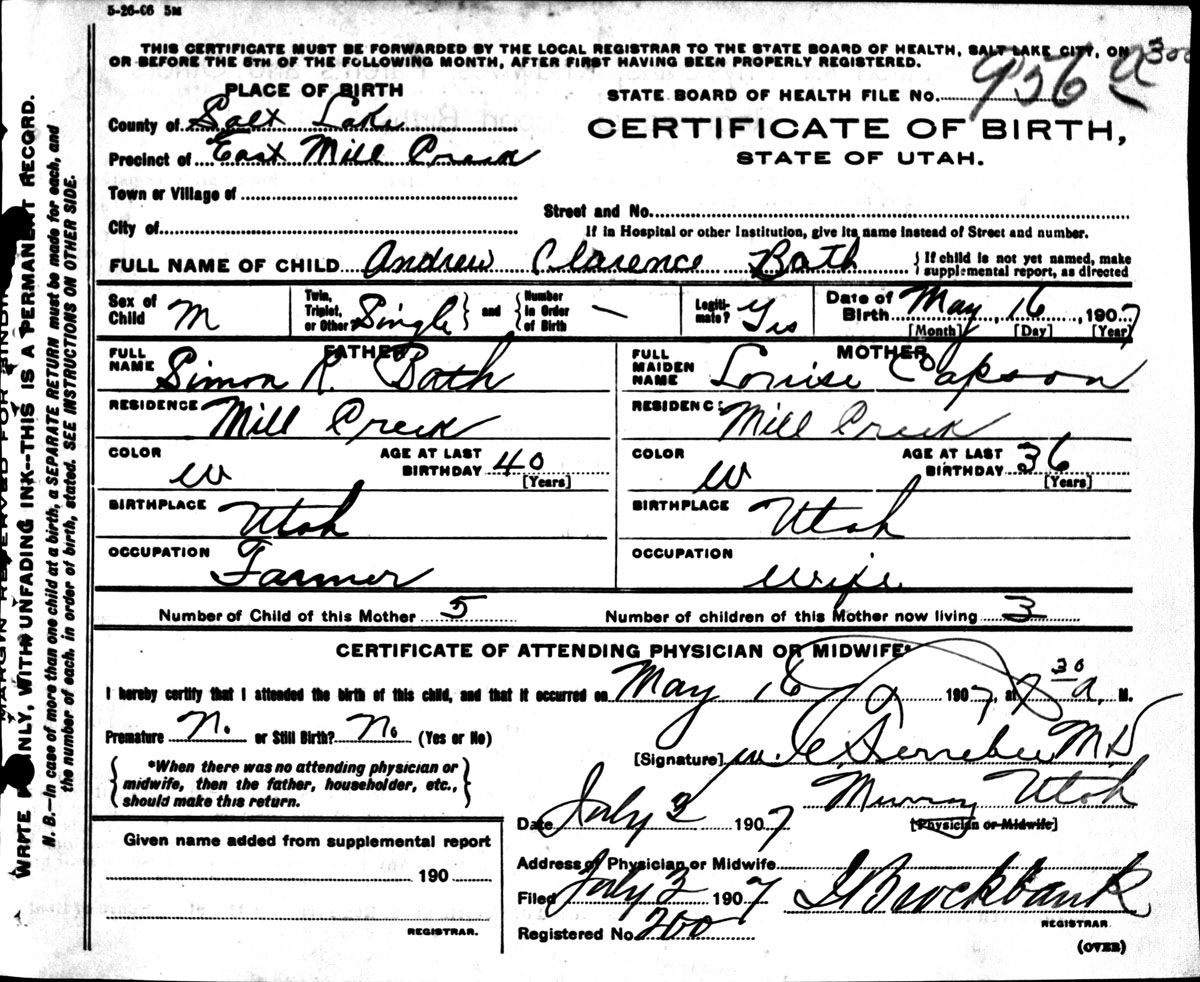 5-26-06 5M
THIS CERTIFICATE MUST BE FORWARDED BY THE LOCAL REGISTRAR TO THE STATE BOARD OF HEALTH, SALT LAKE CITY, ON
OR BEFORE THE 5TH OF THE FOLLOWING MONTH, AFTER FIRST HAVING BEEN PROPERLY REGISTERED.
300
PLACE OF BIRTH
STATE BOARD OF HEALTH FILE NO. 956 a
County of Salt Lake
CERTIFICATE OF BIRTH,
Precinct of East Mill Creek
STATE OF UTAH.
Town or Village of
Street and No.
City of
If in Hospital or other Institution, give its name instead of Street and number.
FULL NAME OF CHILD Andrew Clarence Bath { If child is not yet named, make supplemental report, as directed
Sex of Child M Twin, Triplet, or Other Single } and { Number in Order of Birth — Legitimate? Yes Date of Birth May 16, 1907
[Month] [Day] [Year]
FATHER MOTHER
FULL NAME Simon R. Bath FULL MAIDEN NAME Louise Capson
RESIDENCE Mill Creek RESIDENCE Mill Creek
COLOR W AGE AT LAST BIRTHDAY 40 [Years] COLOR W AGE AT LAST BIRTHDAY 36 [Years]
BIRTHPLACE Utah BIRTHPLACE Utah
OCCUPATION Farmer OCCUPATION Wife
Number of Child of this Mother 5 Number of children of this Mother now living 3
CERTIFICATE OF ATTENDING PHYSICIAN OR MIDWIFE*
I hereby certify that I attended the birth of this child, and that it occurred on May 16 1907, at 30 a. M.
Premature No. or Still Birth? No. (Yes or No)
[Signature] M.D
{ *When there was no attending physician or midwife, then the father, householder, etc., should make this return. }
Murray Utah
Date July 2 1907 [Physician or Midwife]
Given name added from supplemental report
Address of Physician or Midwife
190
Filed July 3 1907 Brockbank
REGISTRAR.
REGISTRAR.
Registered No. 200
(OVER)
MARGIN RESERVED FOR BINDING
WRITE PLAINLY, WITH UNFADING INK—THIS IS A PERMANENT RECORD.
N. B.—In case of more than one child at a birth, a SEPARATE RETURN must be made for each, and
the number of each, in order of birth, stated. SEE INSTRUCTIONS ON OTHER SIDE.